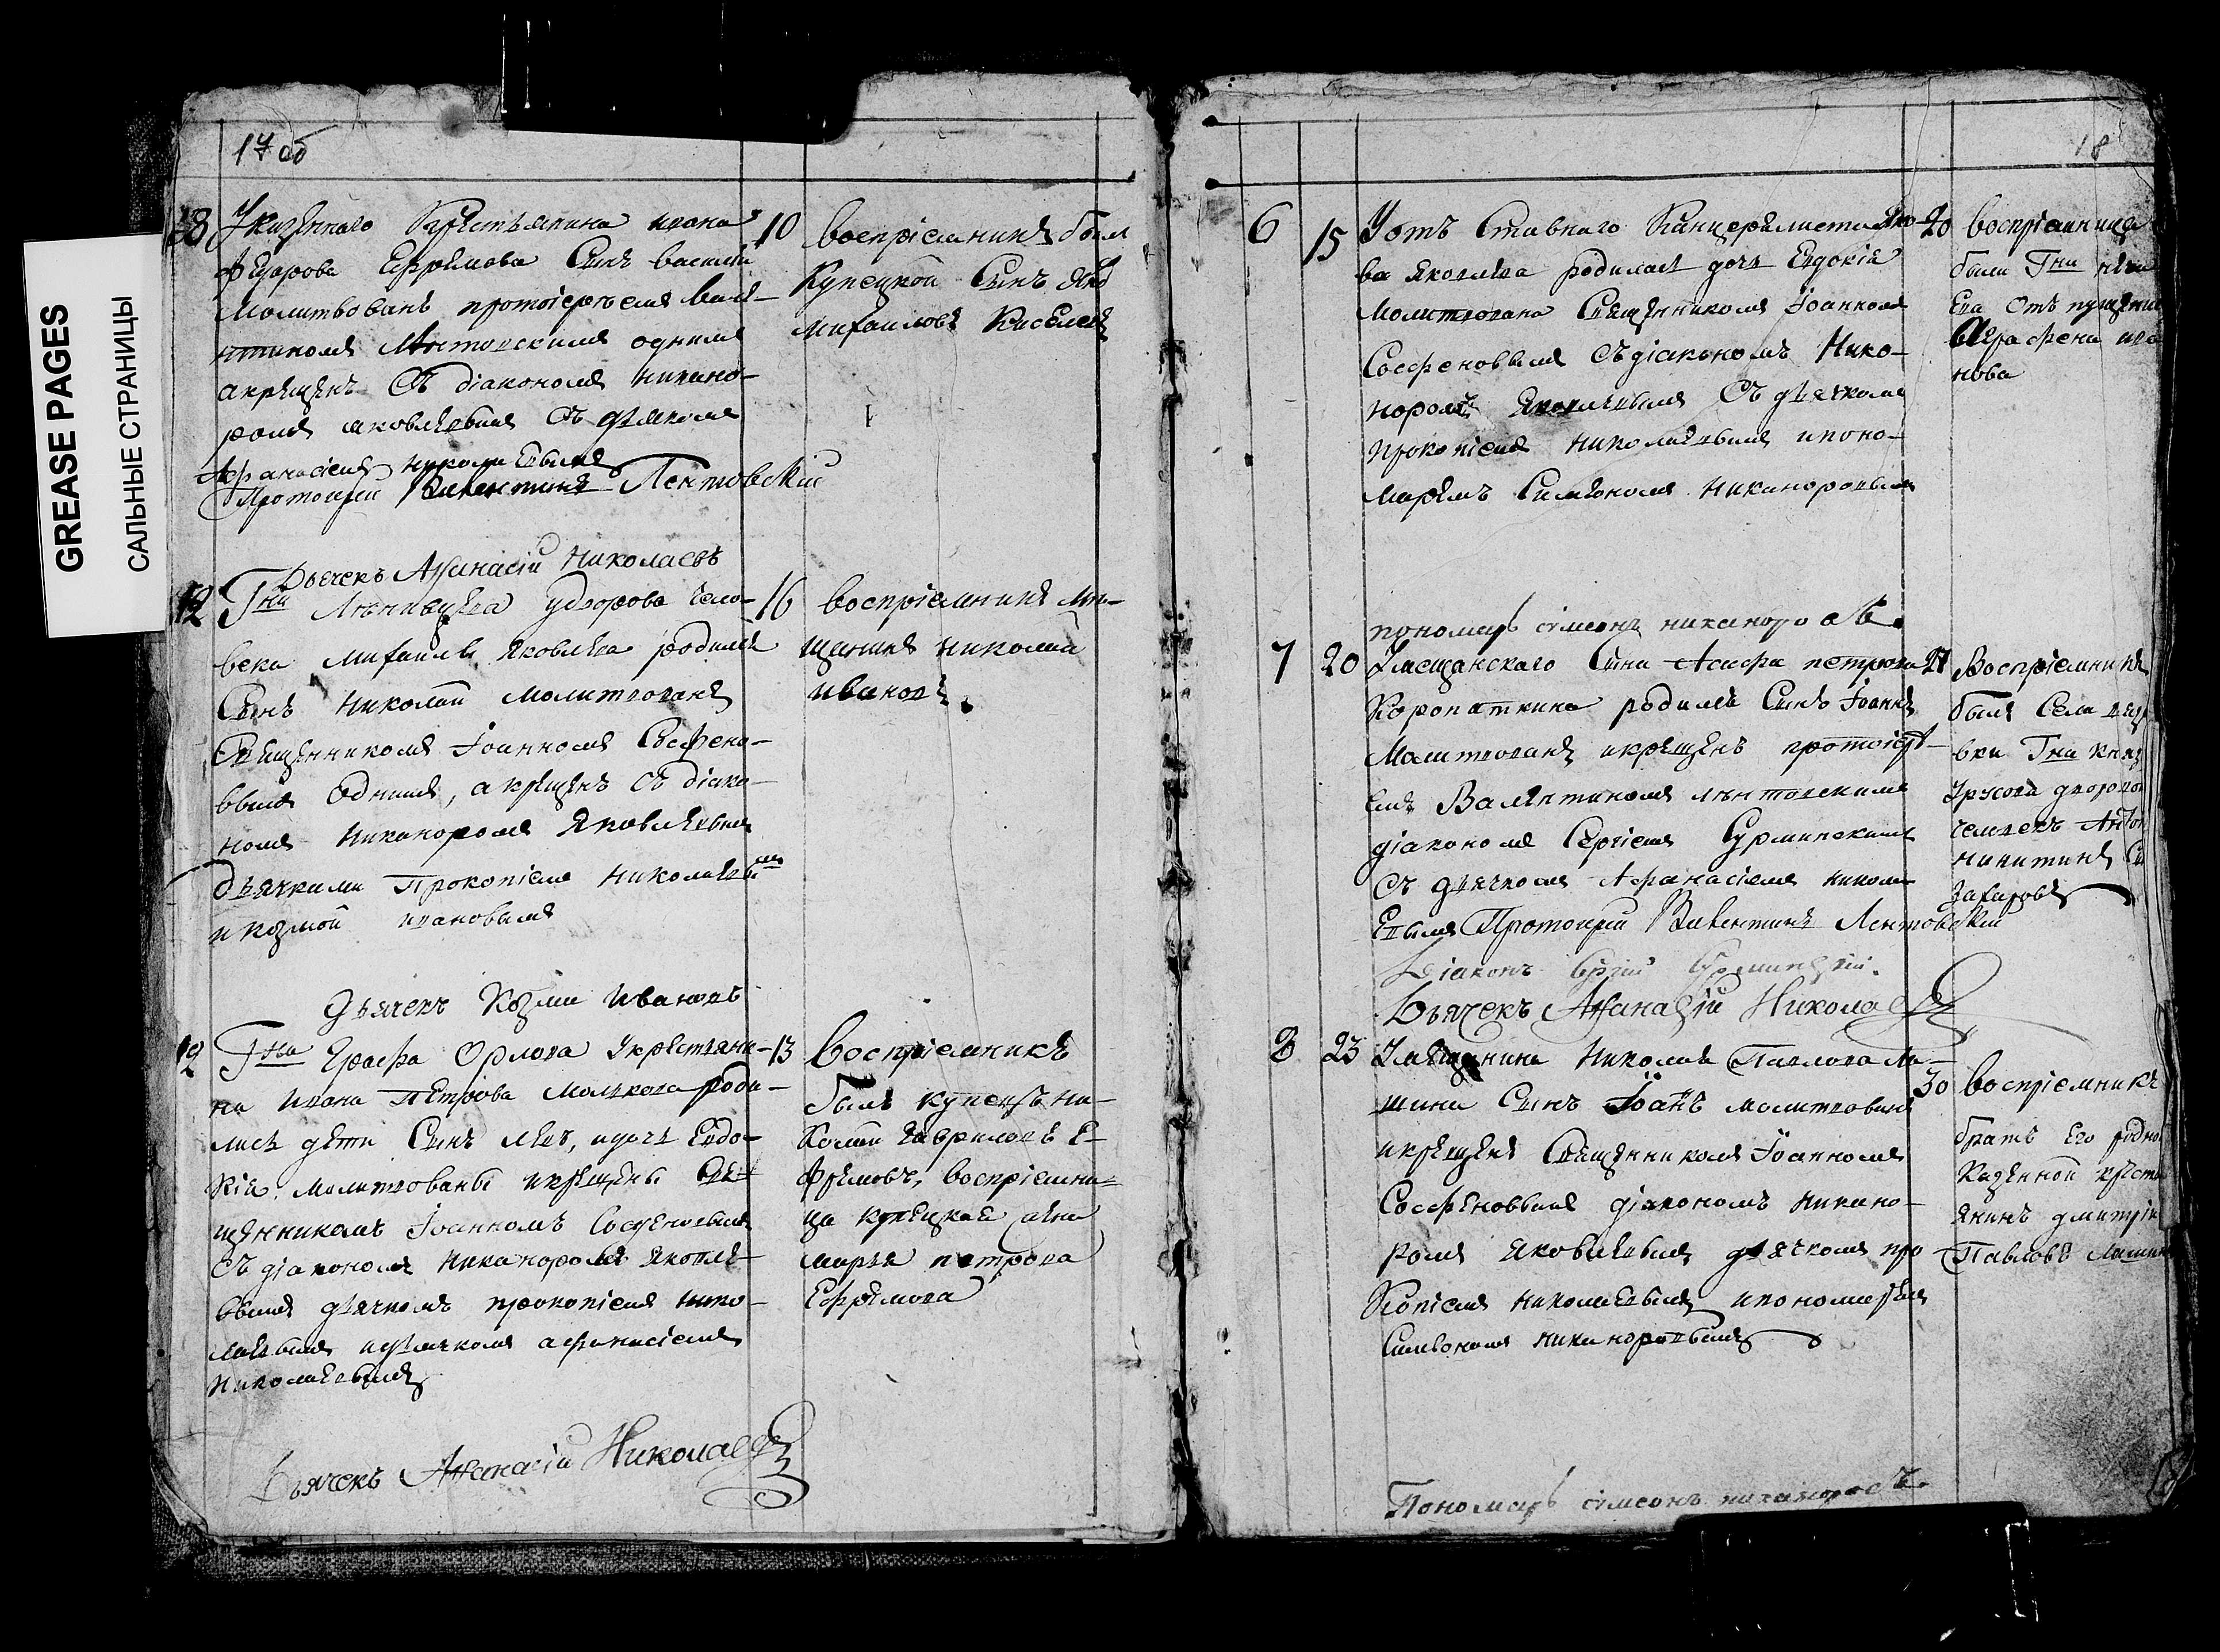 GREASE PAGES
САЛЬНЫЕ СТРАНИЦЫ
17 об
8 Укизеннаго Крестьянина ивана
Федорова Ефремова Сынъ василий
Молитвованъ протоіереемъ Вале-
нтиномъ Лентовскимъ однимъ
акрещенъ Съ діакономъ никано-
ромъ яковлевымъ Съ дьячкомъ
Афанасіемъ николаевымъ
10 воспріемникъ былъ
Купецкой Сынъ
михаиловъ Киселевъ
Протоиерей Валентинъ Лентовскій
Дьячекъ Афанасій Николаевъ
12 Гна удворова чело-
века михаила яковлева родился
Сынъ николай молитвованъ
Священникомъ Іоанномъ Сосфено-
вымъ Однимъ, а крещенъ Съ діако-
номъ никаноромъ яковлевымъ
дьячками Прокопіемъ николаевымъ
и козмой ивановымъ
16 воспріемникъ мѣ-
щанинъ николай
ивановъ
Дьячекъ Козма Ивановъ
12 Гна Ерафа Орлова укрестьяни-
на ивана Петрова родя-
лись дети Сынъ левъ, идочь Евдо-
кія. молитвованы икрещены Свя-
щенникомъ Іоанномъ Сосфеновымъ
Съ діакономъ никаноромъ яковле-
вымъ дьячкомъ прокопіемъ нико-
лаевымъ идьячкомъ афанасіемъ
николаевымъ
13 воспріемникъ
былъ купецъ ни-
колай гавриловъ Е-
фремовъ, воспріемни-
ца купецкая жена
марья петрова
Ефремова
Дьячекъ Афанасій Николаевъ
18
6 15 Уотъ Ставнаго Канцеляриста
ва яковлева родилась дочь Евдокія
молитвована Священникомъ Іоанномъ
Сосфеновымъ Съ діакономъ Нико-
норомъ яковлевымъ Съ дьячкомъ
прокопіемъ николаевымъ ипоно-
маремъ Симеономъ никаноровымъ
20 воспріемница
была Гни
Ева Отъ пущенная
Аграфена ива
нова
пономарь симеонъ никаноровъ
7 20 Умещанскаго Сына петрова
Коропаткина родился Сынъ Іоаннъ
Молитвованъ икрещенъ протоіере-
емъ Валентиномъ лентовскимъ
діакономъ Сергіемъ Сурминскимъ
Съ дьячкомъ Афанасіемъ никола
Евымъ
21 Воспріемникъ
былъ Села
вки Гна княз
Урусова дворовой
человекъ Антон
никитинъ
Захаровъ
Протоиерей Валентинъ Лентовскій
Діаконъ Сергій Сурминскій.
Дьячекъ Афанасій Николаевъ
8 23 Умещанина николая Павлова Ла-
шина Сынъ Іоанъ молитвованъ
икрещенъ Священникомъ Іоанномъ
Сосфеновымъ діакономъ никано-
ромъ яковлевымъ дьячкомъ про
копіемъ николаевымъ ипономаремъ
Симеономъ никаноровымъ
30 воспріемникъ
братъ его родной
Казенной крестъ
янинъ дмитрій
Павловъ Лашин
Пономарь симеонъ никаноровъ.